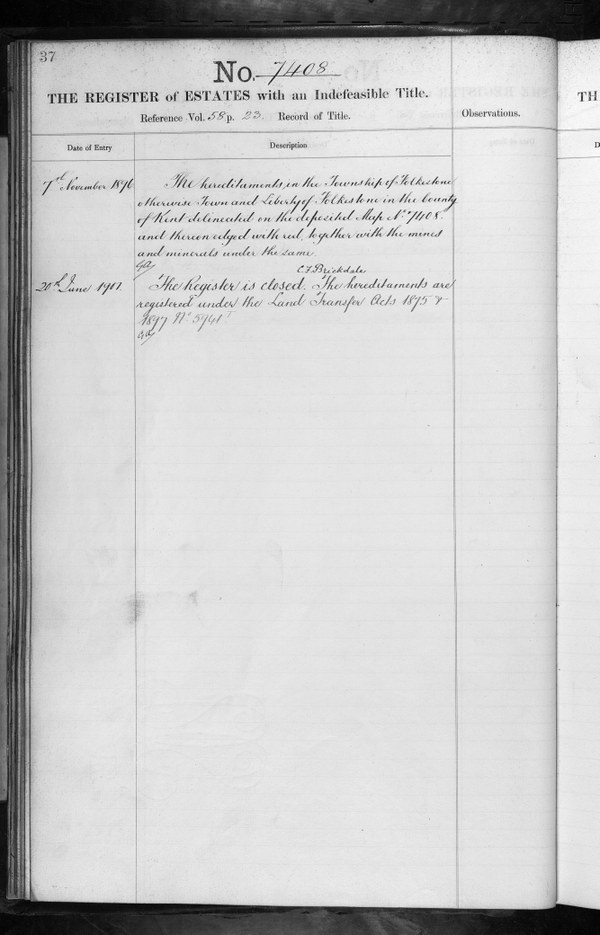 37
No. 7408
THE REGISTER of ESTATES with an Indefeasible Title.
Reference Vol. 58 p. 23. Record of Title.
Observations.
TH
Date of Entry
Description
D
7th November 1896
The hereditaments in the Township of Folkestone
otherwise Town and Liberty of Folkestone in the County
of Kent delineated on the deposited Map No. 7408
and thereon edged with red, together with the mines
and minerals under the same.
C F Brickdale
20th June 1901.
The Register is closed. The hereditaments are
registered under the Land Transfer Acts 1875 &
1897 No 5941